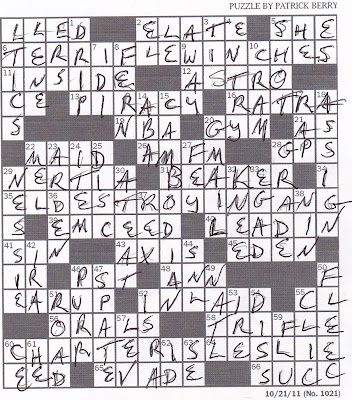 PUZZLE BY PATRICK BERRY
LLED ELATE SHE
TERRIFLEWINCHES
INSIDE ASTRO
CE PIRACY RATRA
S NBA GYM AS
MAID AMFM GPS
NERTIA BEAKER I
ELDESTROYINGANG
S EMCEED LEADIN
SIN AXIS EDEN
IR PST ANN F
EARUP INLAID CL
ORALS TRIFLE
CHAPTERISLESLIE
EED EVADE SUCC
10/21/11 (No. 1021)